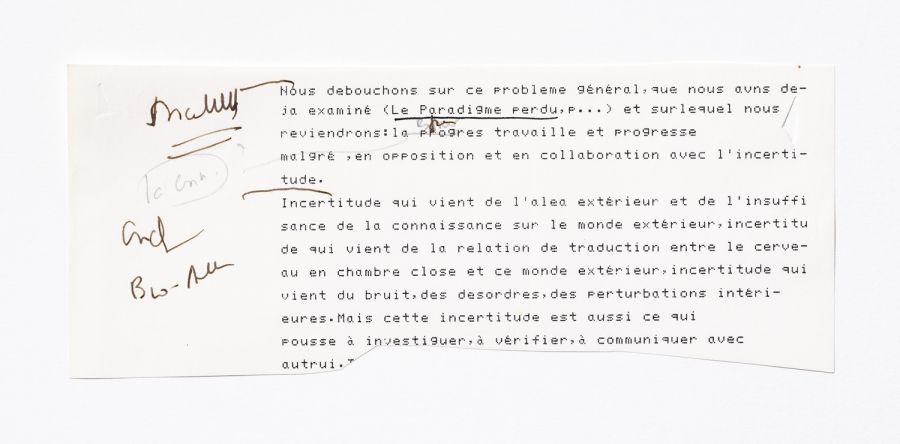 Nous debouchons sur ce probleme général,que nous avns de-
ja examiné (Le Paradigme perdu,p...) et surlequel nous
reviendrons:la progres travaille et progresse
malgré ,en opposition et en collaboration avec l'incerti-
tude.
Incertitude qui vient de l'alea extérieur et de l'insuffi
sance de la connaissance sur le monde extérieur,incertitu
de qui vient de la relation de traduction entre le cerve-
au en chambre close et ce monde extérieur,incertitude qui
vient du bruit,des desordres,des perturbations intéri-
eures.Mais cette incertitude est aussi ce qui
pousse à investiguer,à vérifier,à communiquer avec
autrui.